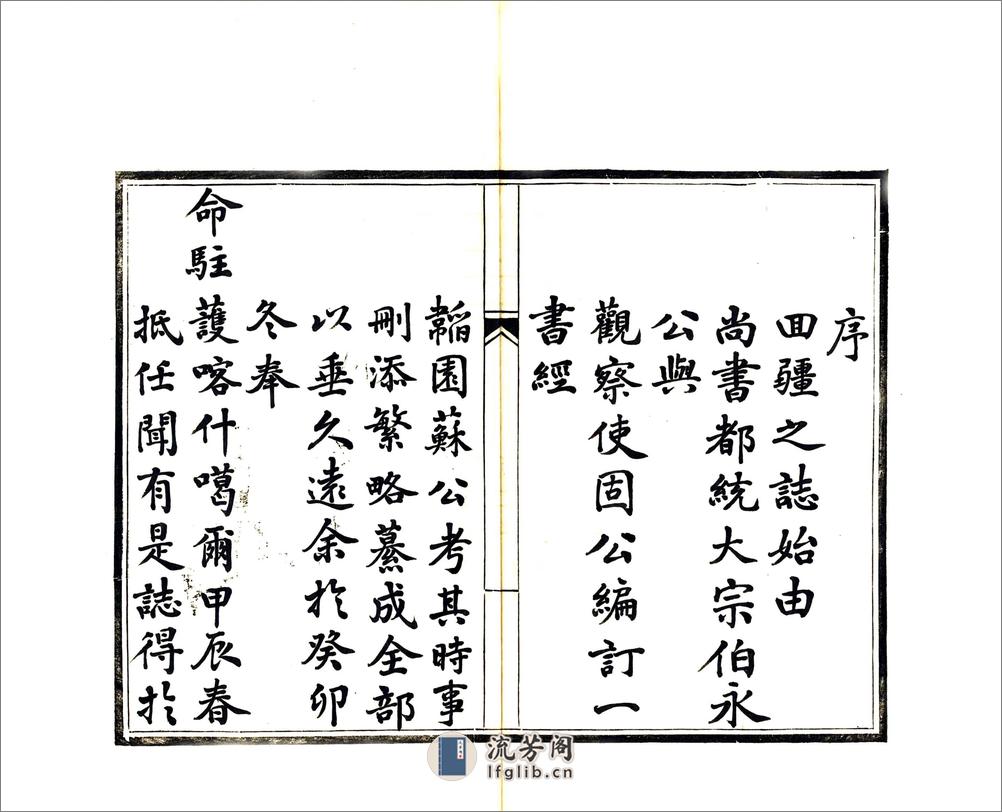 序
回疆之誌始由
尚書都統大宗伯永
公與
觀察使固公編訂一
書經
韜園蘇公考其時事
刪添繁略纂成全部
以垂久遠余於癸卯
冬奉
命駐護喀什噶爾甲辰春
抵任聞有是誌得於
流芳阁
lfglib.cn